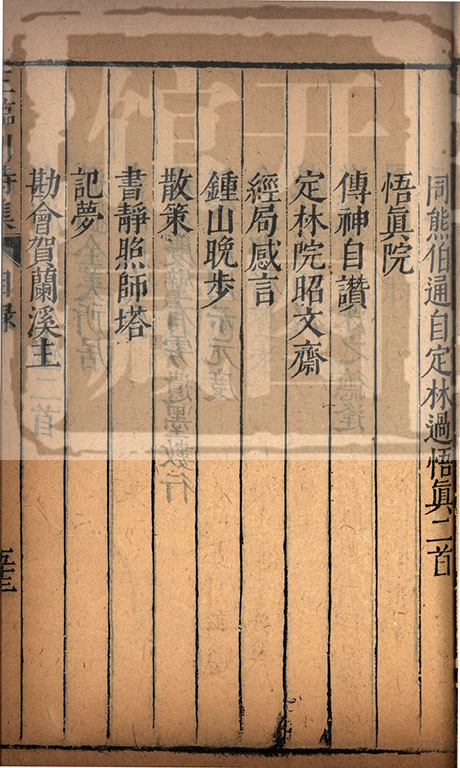 同熊伯通自定林過悟眞二首
悟眞院
傳神自讚
定林院昭文齋
經局感言
鍾山晩步
散策
書靜照師塔
記夢
勘會賀蘭溪主
王臨川詩集 目錄